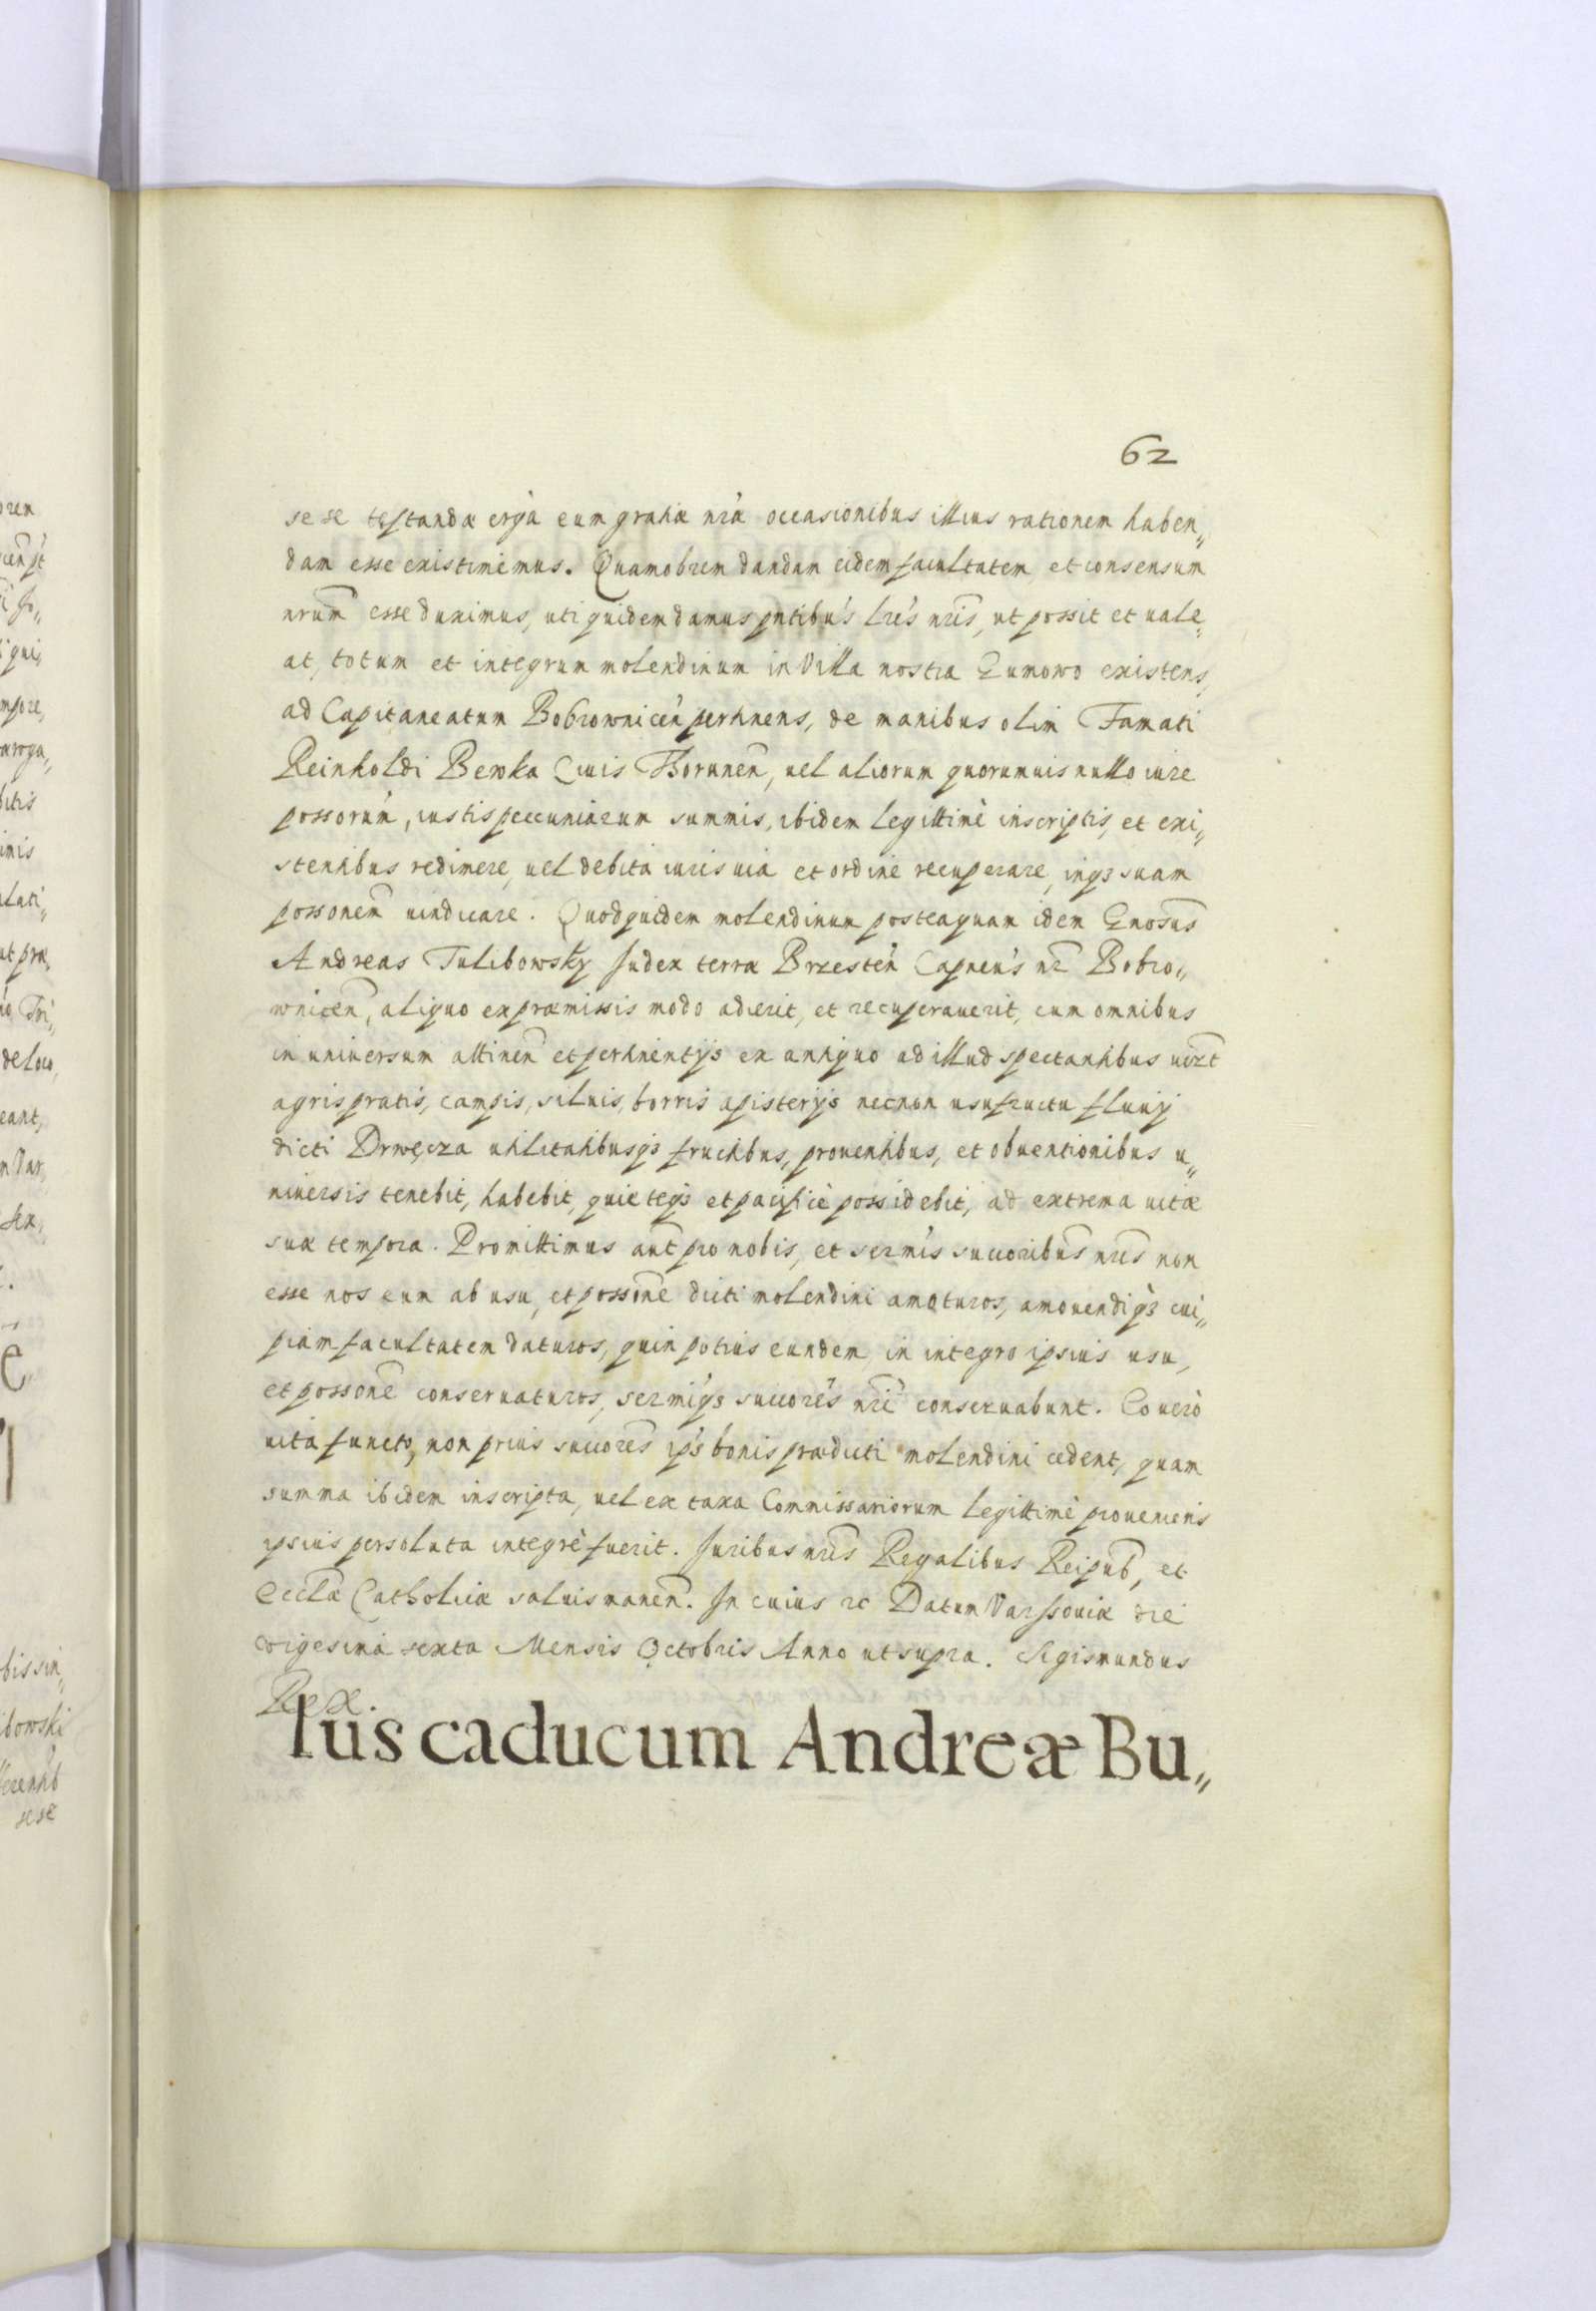 62
sese testandæ ergà eum gratiæ nrá occasionibus illius rationem haben„
dam esse existimemus. Quamobrem dandam eidem facultatem et consensum
nrum̃ esse duximus, uti quidem damus pntibus lrés nrĩs, ut possit et uale„
at, totum et integrum molendinum in Villa nostra Zumowo existens,
ad Capitaneatum Bobrownicén pertinens, de manibus olim Famati
Reinholdi Bewka Ciuis Thorunen̄, uel aliorum quorumuis nullo iure
possorum̃, iustis peccuniarum summis, ibidem legittimè inscriptis, et exi„
stentibus redimere, uel debita iuris uia et ordine recuperare, inq3 suam
possonem̃ uindicare. Quodquidem molendinum posteaquam idem Gnosus̃
Andreas Tulibowsky Judex terræ Brzestén Capneus nr̃ Bobro„
wnicen̄, aliquo ex præmissis modo adierit, et recuperauerit, cum omnibus
in uniuersum attinen̄ et pertinentijs ex antiquo ad illud spectantibus uizt
agris pratis, campis, siluis, borris apisterijs necnon usufructu fluuij
dicti Drwęcza utilitatibusq3 fructibus, prouentibus, et obuentionibus u„
niuersis tenebit, habebit, quieteq3 et pacificè possidebit, ad extrema uitæ
suæ tempora. Promittimus aut̃ pro nobis, et sermis succoribus̃ nrĩs non
esse nos eum ab usu, et possone dicti molendini amoturos, amouendiq3 cui„
piam facultatem daturos, quin potius eundem in integro ipsius usu,
et possone conseruaturos, sermiq3 succores nrĩ conseruabunt. Eo uerò
uita functo, non prius succores ip̃s bonis prædicti molendini cedent, quam
summa ibidem inscripta, uel ex taxa Commissariorum legittimè proueniens
ipsius persoluta integrè fuerit. Juribus nrĩs Regalibus Reipub̃, et
Eccl̃æ Catholicæ saluis manen̄. In cuius rc Datum Varssouiæ die
uigesima sexta Mensis Octobris Anno ut supra. Sigismundus
Rex.
Ius caducum Andreæ Bu„